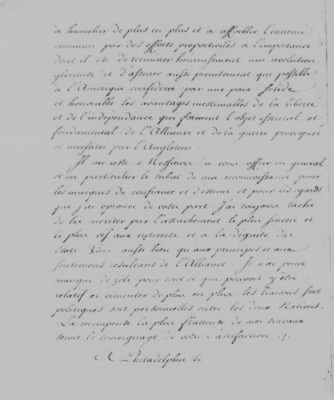 à humilier de plus en plus et à affoiblir l'ennemi
commun par des efforts proportionés à l'importance
dont il est de terminer heureusement une révolution
glorieuse et d'assurer aussi promtement que possible
à l'Amerique confédérée par une paix solide
et honorable les avantages inestimables de la liberté
et de l'independance qui forment l'objet essentiel et
fondamental de l'Alliance et de la guerre provoquée
et necessitée par l'Angleterre.
Il me reste Messieurs à vous offrir en general
et en particulier le tribut de ma reconnoissance pour
les marques de confiance et d'estime et pour les égards
que j'ai éprouvé de votre part. J'ai toujours taché
de les meriter par l'attachement le plus sincere et
le plus vif aux interets et à la dignité des
Etats Unis aussi bien qu'aux principes et aux
sentimens résultant de l'Alliance. Je n'ai point
manqué de zèle pour tout ce qui pouvoit y être
relatif et cimenter de plus en plus les liaisons soit
politiques soit personnelles entre les deux Nations.
La recompense la plus flatteuse de mes travaux
seroit le temoignage de votre satisfaction.
A Philadelphie le